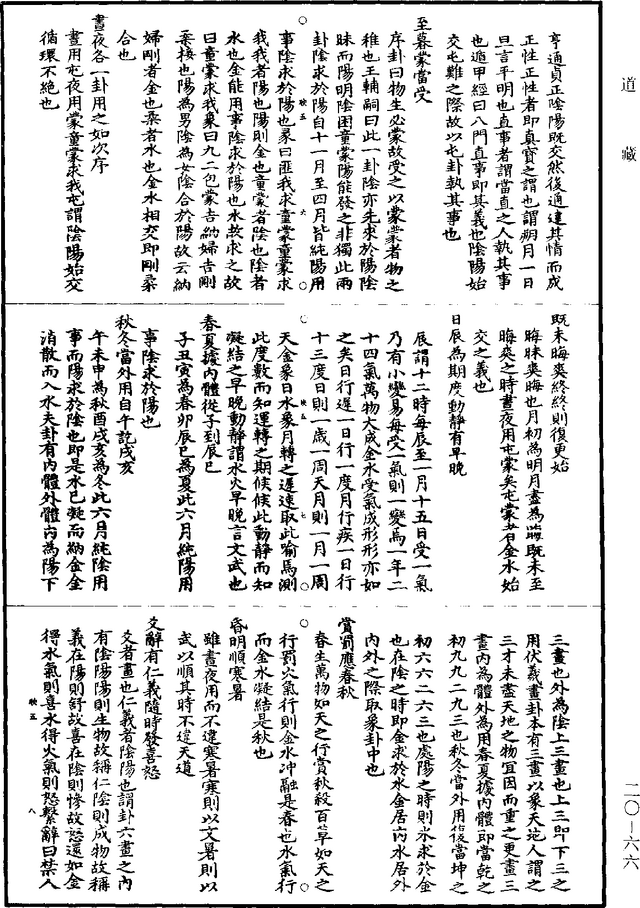 道藏
二〇—六六
亨通貞正陰陽既交然後通達其情而成
正性正性者即真寶之謂也謂朔月一日
旦言平明也直事者謂當直之人執其事
也遁甲經曰八門直事即其義也陰陽始
交屯難之際故以屯卦執其事也
至暮蒙當受
序卦曰物生必蒙故受之以蒙蒙者物之
稚也王輔嗣曰此一卦陰亦先求於陽陰
昧而陽明陰困童蒙陽能發之非獨此兩
卦陰求於陽自十一月至四月皆純陽用
事陰求於陽也彖曰匪我求童蒙童蒙求
我我者陽也陽則金也童蒙者陰也陰者
水也金能用事陰求於陽也水故求之故
曰童蒙求我彖曰九二包蒙吉納婦吉剛
柔接也陽為男陰為女陰合於陽故云納
婦剛者金也柔者水也金水相交即剛柔
合也
晝夜各一卦用之如次序
晝用屯夜用蒙童蒙求我屯謂陰陽始交
循環不絶也
既未晦爽終終則復更始
晦昧爽晦也月初為明月盡為晦既未至
晦爽之時晝夜用屯蒙矣屯蒙者金水始
交之義也
日辰為期度動靜有早晚
辰謂十二時每辰至一月十五日受一氣
乃有小變易每受一氣則一變焉一年二
十四氣萬物大成金水受氣成形形亦如
之矣日行遲一日行一度月行疾一日行
十三度日則一歲一周天月則一月一周
天金象日水象月轉之遲速取此喻焉測
此度數而知運轉之期候候此動靜而知
凝結之早晚動靜謂水火早晚言文武也
春夏據內體從子到辰巳
子丑寅為春卯辰巳為夏此六月純陽用
事陰求於陽也
秋冬當外用自午訖戌亥
午未申為秋酉戌亥為冬此六月純陰用
事而陽求於陰也即是水已凝而納金金
消散而入水夫卦有內體外體內為陽下
三畫也外為陰上三畫也上三即下三之
用伏羲畫卦本有三畫以象天地人謂之
三才未盡天地之物宜因而重之更畫三
畫內為體外為用春夏據內體即當乾之
初九九二九三也秋冬當外用後當坤之
初六六二六三也處陽之時則水求於金
也在陰之時即金求於水金居內水居外
內外之際取象卦中也
賞罰應春秋
春生萬物如天之行賞秋殺百草如天之
行罰火氣行則金水沖融是春也水氣行
而金水凝結是秋也
昏明順寒暑
雖晝夜用而不違寒暑寒則以文暑則以
武以順其時不違天道
爻辭有仁義隨時發喜怒
爻者畫也仁義者陰陽也謂卦六畫之內
有陰陽陽則生物故稱仁陰則成物故稱
義在陽則舒故喜在陰則慘故怒還如金
得水氣則喜水得火氣則怒繫辭曰禁人